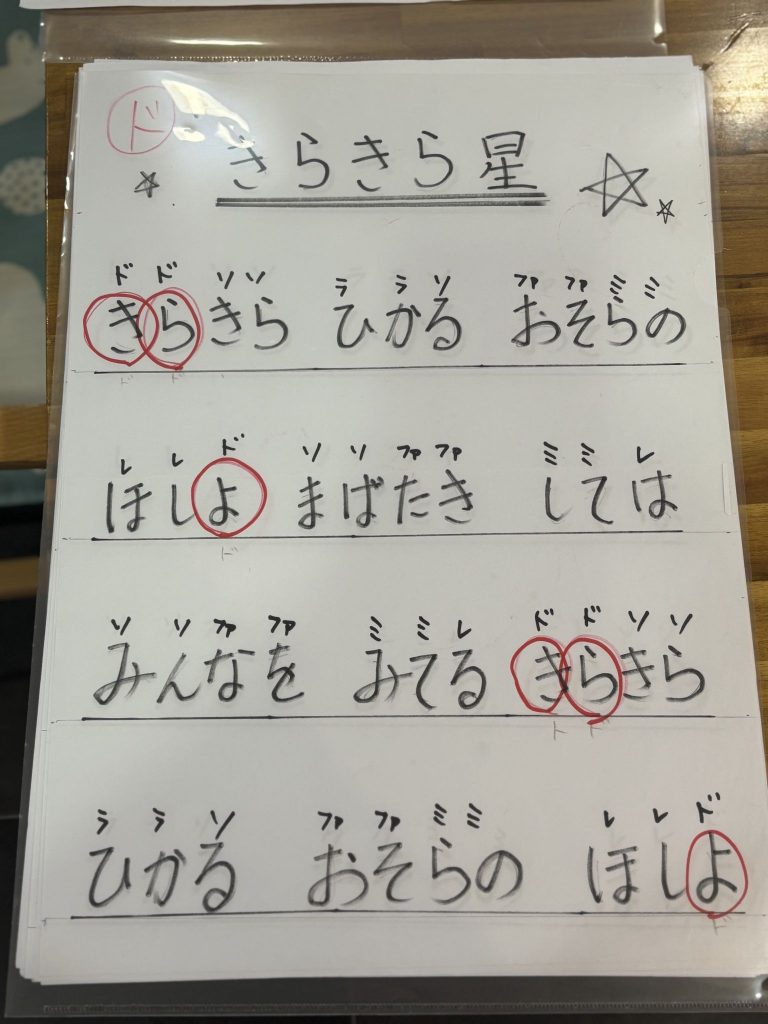 ド
きらきら星
ド ド ソ ソ ラ ラ ソ ファ ファ ミ ミ
きらきら ひかる おそらの
ド ド
レ レ ド ソ ソ ファ ファ ミ ミ レ
ほしよ まばたき しては
ド
ソ ソ ファ ファ ミ ミ レ ド ド ソ ソ
みんなを みてる きらきら
ド ド
ラ ラ ソ ファ ファ ミ ミ レ レ ド
ひかる おそらの ほしよ
ド